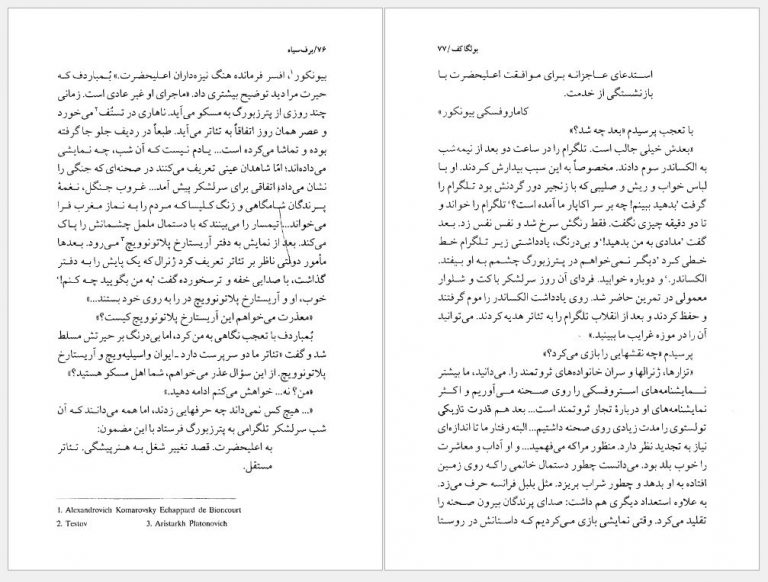 ۷۶/برف سیاه
بیونکور۱، افسر فرمانده هنگ نیزه‌داران اعلیحضرت.» بُمباردف که
حیرت مرا دید توضیح بیشتری داد. «ماجرای او غیر عادی است. زمانی
چند روزی از پترزبورگ به مسکو می‌آید. ناهاری در تستُف۲ می‌خورد
و عصر همان روز اتفاقاً به تئاتر می‌آید. طبعاً در ردیف جلو جا گرفته
بوده و تماشا می‌کرده است... یادم نیست که آن شب، چه نمایشی
می‌داده‌اند؛ امّا شاهدان عینی تعریف می‌کنند در صحنه‌ای که جنگی را
نشان می‌داد، اتفاقی برای سرلشکر پیش آمد... غروب جنگل، نغمهٔ
پرندگان شامگاهی و زنگ کلیسا که مردم را به نماز مغرب فرا
می‌خواند... تیمسار را می‌بینند که با دستمال ململ چشمانش را پاک
می‌کند. بعد از نمایش به دفتر آریستارخ پلاتونوویچ۳ می‌رود. بعدها
مأمور دولتی ناظر بر تئاتر تعریف کرد ژنرال که یک پایش را به دفتر
گذاشت، با صدایی خفه و ترسخورده گفت ’به من بگویید چه کنم!‘
خوب، او و آریستارخ پلاتونوویچ در را به روی خود بستند...»
«معذرت می‌خواهم این آریستارخ پلاتونوویچ کیست؟»
بُمباردف با تعجب نگاهی به من کرد، اما بی‌درنگ بر حیرتش مسلط
شد و گفت «تئاتر ما دو سرپرست دارد ـ ایوان واسیلیه‌ویچ و آریستارخ
پلاتونوویچ. از این سؤال عذر می‌خواهم، شما اهل مسکو هستید؟»
«من؟ نه... خواهش می‌کنم ادامه دهید.»
«... هیچ کس نمی‌داند چه حرفهایی زدند، اما همه می‌دانند که آن
شب سرلشکر تلگرامی به پترزبورگ فرستاد با این مضمون:
به اعلیحضرت. قصد تغییر شغل به هنرپیشگی. تئاتر
مستقل.
1. Alexandrovich Komarovsky Echappard de Bioncourt
2. Testov 3. Aristarkh Platonovich
بولگاکف/۷۷
استدعای عاجزانه برای موافقت اعلیحضرت با
بازنشستگی از خدمت.
کاماروفسکی بیونکور»
با تعجب پرسیدم «بعد چه شد؟»
«بعدش خیلی جالب است. تلگرام را در ساعت دو بعد از نیمه‌شب
به الکساندر سوم دادند. مخصوصاً به این سبب بیدارش کردند. او با
لباس خواب و ریش و صلیبی که با زنجیر دور گردنش بود تلگرام را
گرفت ’بدهید ببینم! چه بر سر اکاپار ما آمده است؟‘ تلگرام را خواند و
تا دو دقیقه چیزی نگفت. فقط رنگش سرخ شد و نفس نفس زد. بعد
گفت ’مدادی به من بدهید!‘ و بی‌درنگ، یادداشتی زیر تلگرام خط
خطی کرد ’دیگر نمی‌خواهم در پترزبورگ چشمم به او بیفتد.
الکساندر.‘ و دوباره خوابید. فردای آن روز سرلشکر با کت و شلوار
معمولی در تمرین حاضر شد. روی یادداشت الکساندر را موم گرفتند
و حفظ کردند و بعد از انقلاب تلگرام را به تئاتر هدیه کردند. می‌توانید
آن را در موزه غرایب ما ببینید.»
پرسیدم «چه نقشهایی را بازی می‌کرد؟»
«تزارها، ژنرالها و سران خانواده‌های ثروتمند را. می‌دانید، ما بیشتر
نمایشنامه‌های استروفسکی را روی صحنه می‌آوریم و اکثر
نمایشنامه‌های او دربارهٔ تجار ثروتمند است... بعد هم قدرت تاریکی
تولستوی را مدت زیادی روی صحنه داشتیم... البته رفتار ما تا اندازه‌ای
نیاز به تجدید نظر دارد. منظور مرا که می‌فهمید... و او آداب و معاشرت
را خوب بلد بود. می‌دانست چطور دستمال خانمی را که روی زمین
افتاده به او بدهد و چطور شراب بریزد. مثل بلبل فرانسه حرف می‌زد.
به علاوه استعداد دیگری هم داشت: صدای پرندگان بیرون صحنه را
تقلید می‌کرد. وقتی نمایشی بازی می‌کردیم که داستانش در روستا